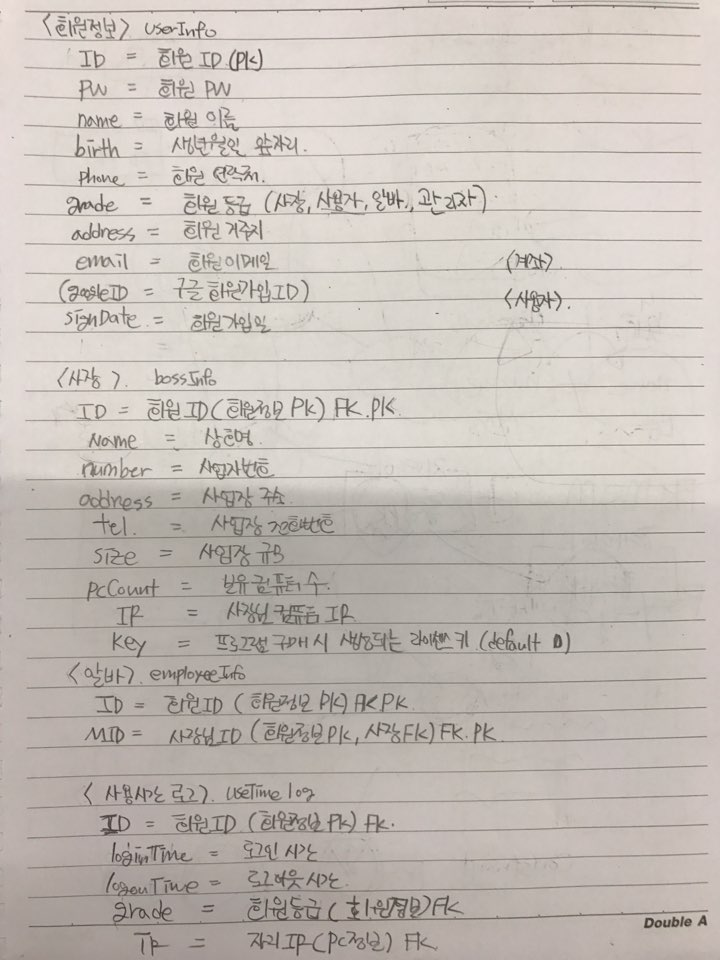 <회원정보> userInfo
ID = 회원 ID (PK)
PW = 회원 PW
name = 회원 이름
birth = 생년월일 앞자리.
phone = 회원 연락처.
grade = 회원 등급 (사장, 사용자, 알바, 관리자)
address = 회원 거주지
email = 회원이메일 (계좌).
(googleID = 구글 회원가입ID) <사용자>.
signDate = 회원가입일
<사장>. bossInfo
ID = 회원ID (회원정보 PK) FK. PK.
Name = 상호명.
number = 사업자번호
address = 사업장 주소
tel. = 사업장 전화번호
size = 사업장 규모
pcCount = 보유 컴퓨터 수.
IP = 사장님 컴퓨터 IP
Key = 프로그램 구매 시 사용되는 라이센스 키 (default 0)
<알바>. employeeInfo
ID = 회원ID (회원정보 PK) FK PK.
MID = 사장님ID (회원정보PK, 사장FK) FK. PK.
<사용시간 로그>. useTime log
ID = 회원ID (회원정보 PK) FK.
loginTime = 로그인 시간
logouTime = 로그아웃시간.
grade = 회원등급 (회원정보)FK
IP = 자리IP (PC정보) FK.
Double A